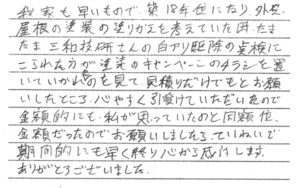 我家も早いもので、築18年位になり外壁、
屋根の塗装の塗りかえを考えていた時、たま
たま三和技研さんの白アリ駆除の点検に
こられた方が塗装のキャンペーンのチラシを置
いていかれるのを見て見積りだけでもとお願
いしたところ、心やすく引受けていただいたので
金額的にも、私が思っていたのと同額位、
金額だったのでお願いしましたら、ていねいで
期間的にも早く終り心から感謝します。
ありがとうございました。